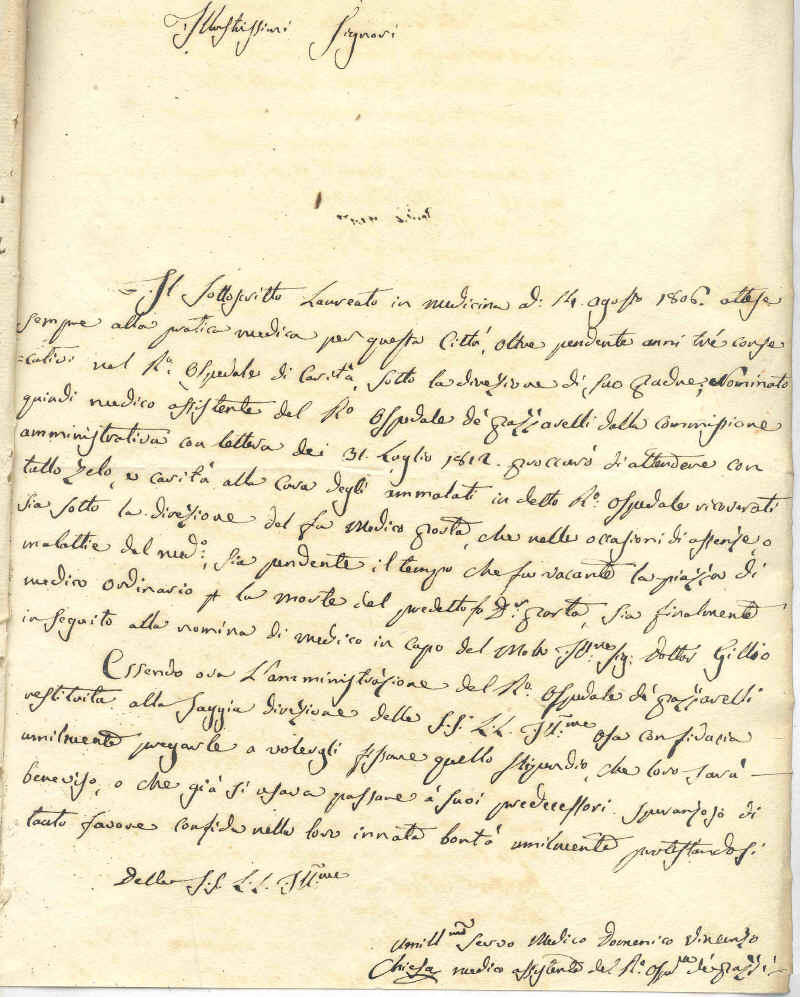 Illustrissimi Signori
Il Sottoscritto Laureato in medicina adi 14. agosto 1806. attese
sempre alla pratica medica per questa Città, oltre pendente anni trè conse
=cutivi nel R.º Ospedale di Carità, sotto la direzione di suo padre; Nominato
quindi medico assistente del R.º Ospedale de' pazzarelli dalla commissione
amministrativa con lettera dei 31. Luglio 1812. proccurò di attendere con
tutto zelo, e carità alla Cura degli ammalati in detto R.º Ospedale ricoverati
sia sotto la direzione del fu Medico porta, che nelle occasioni di assenze, o
malattie del med.º, sia pendente il tempo che fu vacante la piazza di
medico ordinario p la morte del predetto fu D.r porta, sia finalmente
in seguito alla nomina di Medico in capo del Molto Ill.re Sig. Dottor Gillio
Essendo ora L'amministrazione del R.º Ospedale de' pazzarelli
restituita alla saggia direzione delle S.S. L.L. Ill.me osa con fidacia
umilmente pregarle a volergli fissare quello stipendio, che loro sarà
beneviso, o che già si usava passare a' suoi predecessori. Speranzoso di
tanto favore confida nella loro innata bontà umilmente protestandosi
Delle S.S. L.L. Ill.me
Umill.mo Servo Medico Domenico Vincenzo
Chiesa medico assistente del R.º Osp.le de' pazzi